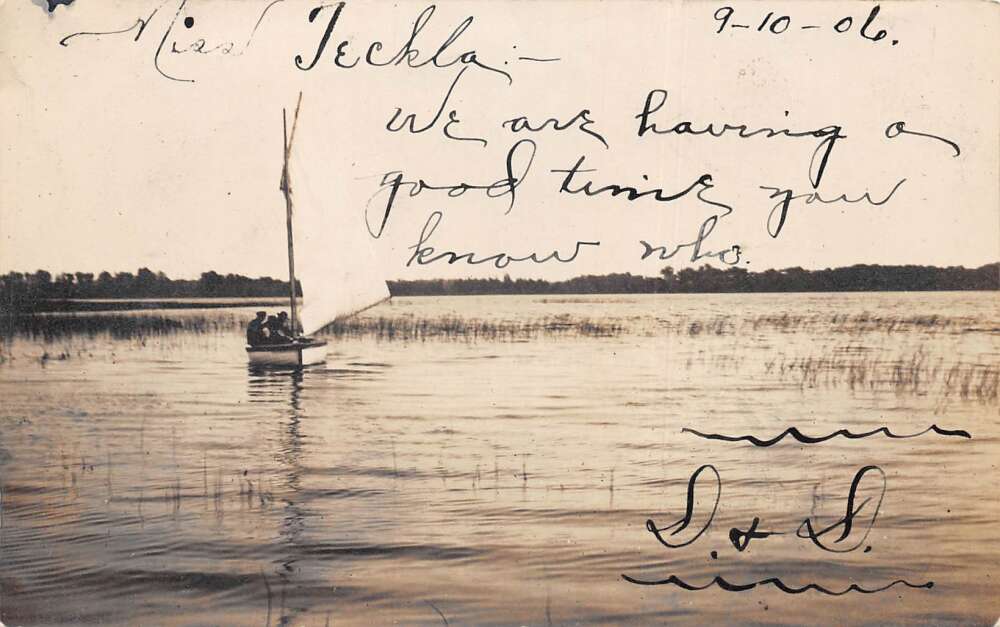 9-10-06.
Miss Teckla:—
We are having a
good time you
know who.
D. & D.